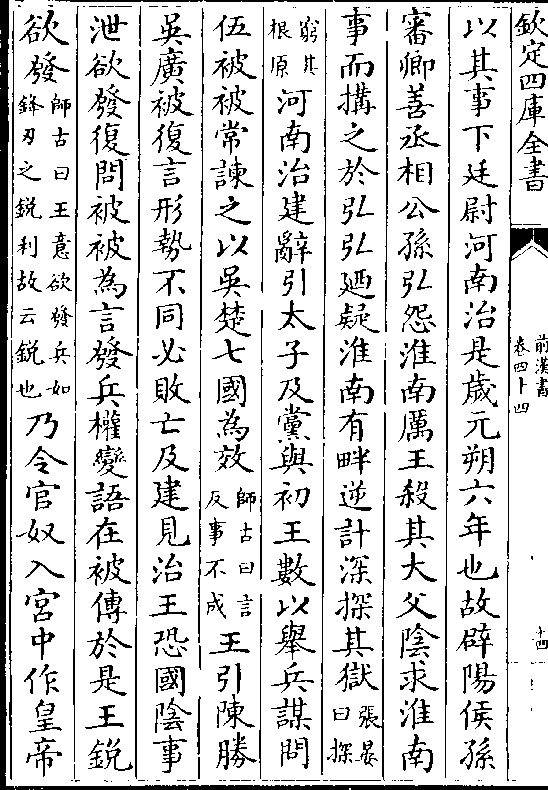 欽定四庫全書
前漢書
卷四十四
十四
以其事下廷尉河南治是歲元朔六年也故辟陽侯孫
審卿善丞相公孫弘怨淮南厲王殺其大父陰求淮南
事而搆之於弘弘廼疑淮南有畔逆計深探其獄張晏曰探
窮其根原河南治建辭引太子及黨與初王數以舉兵謀問
伍被被常諫之以吳楚七國為效師古曰言反事不成王引陳勝
吳廣被復言形勢不同必敗亡及建見治王恐國陰事
泄欲發復問被被為言發兵權變語在被傳於是王鋭
欲發師古曰王意欲發兵如鋒刃之鋭利故云鋭也乃令官奴入宮中作皇帝